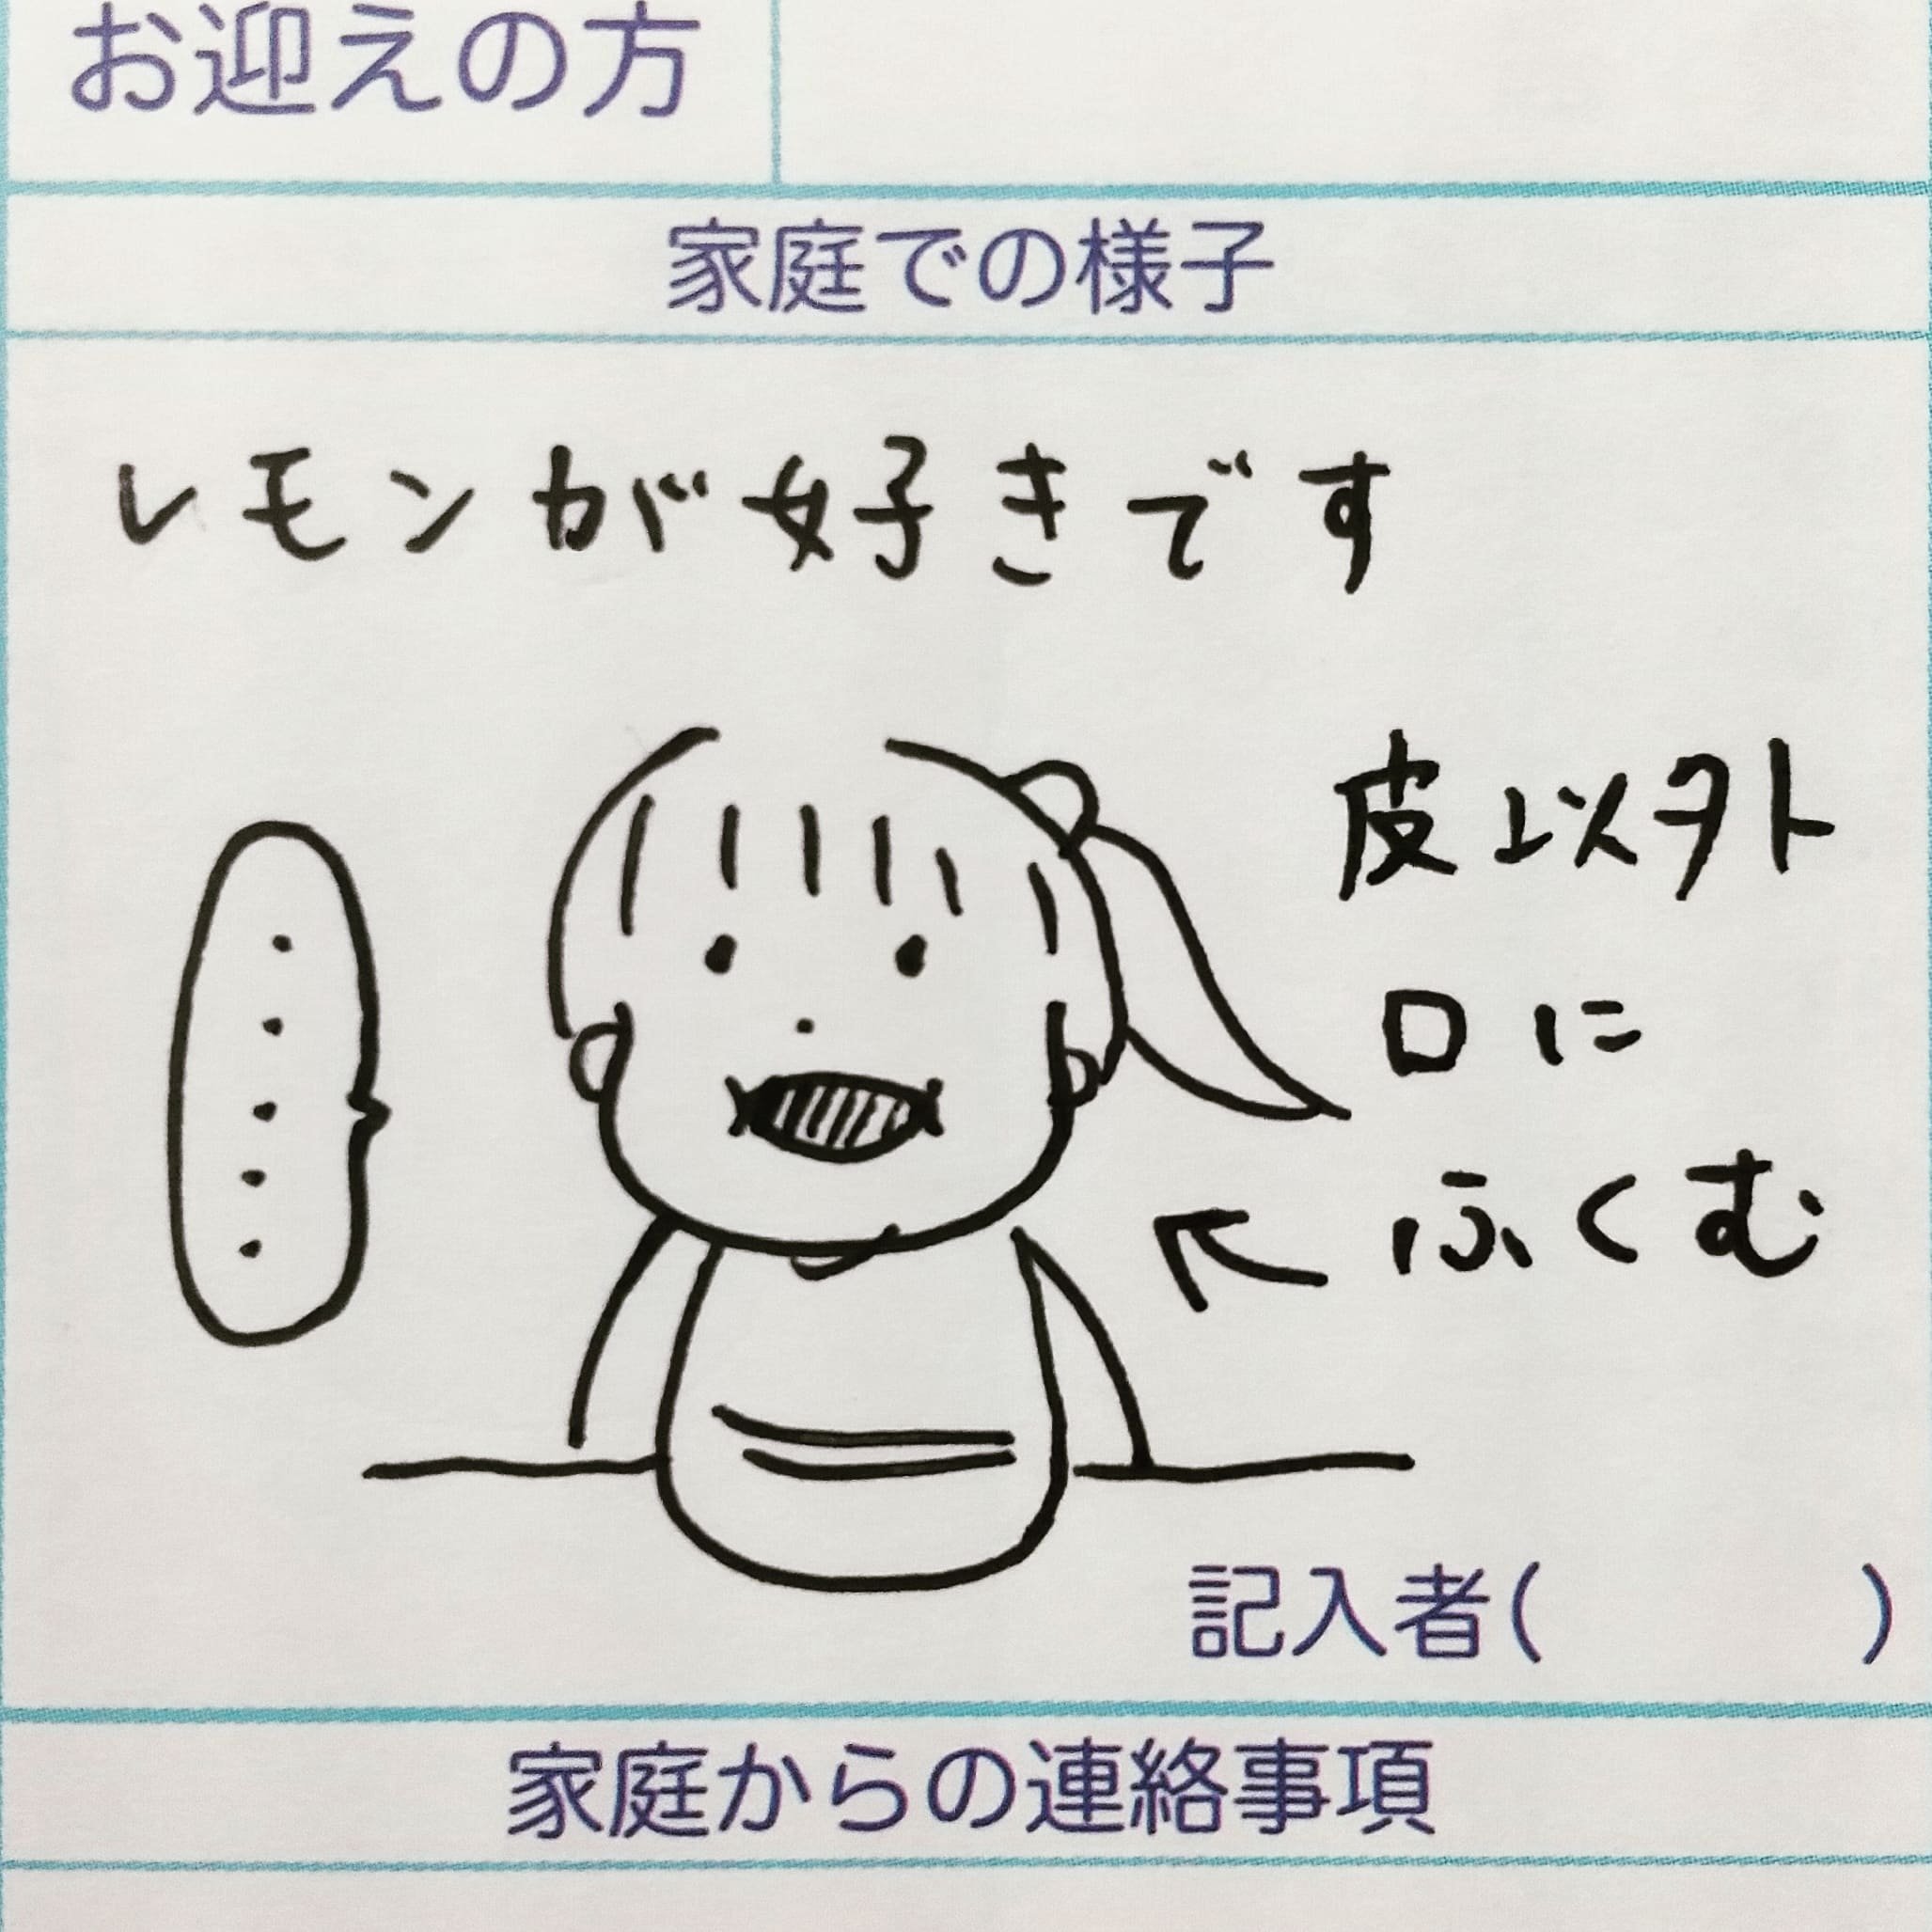 お迎えの方
家庭での様子
レモンが好きです
皮以外
口に
ふくむ
.....
記入者(　　　)
家庭からの連絡事項